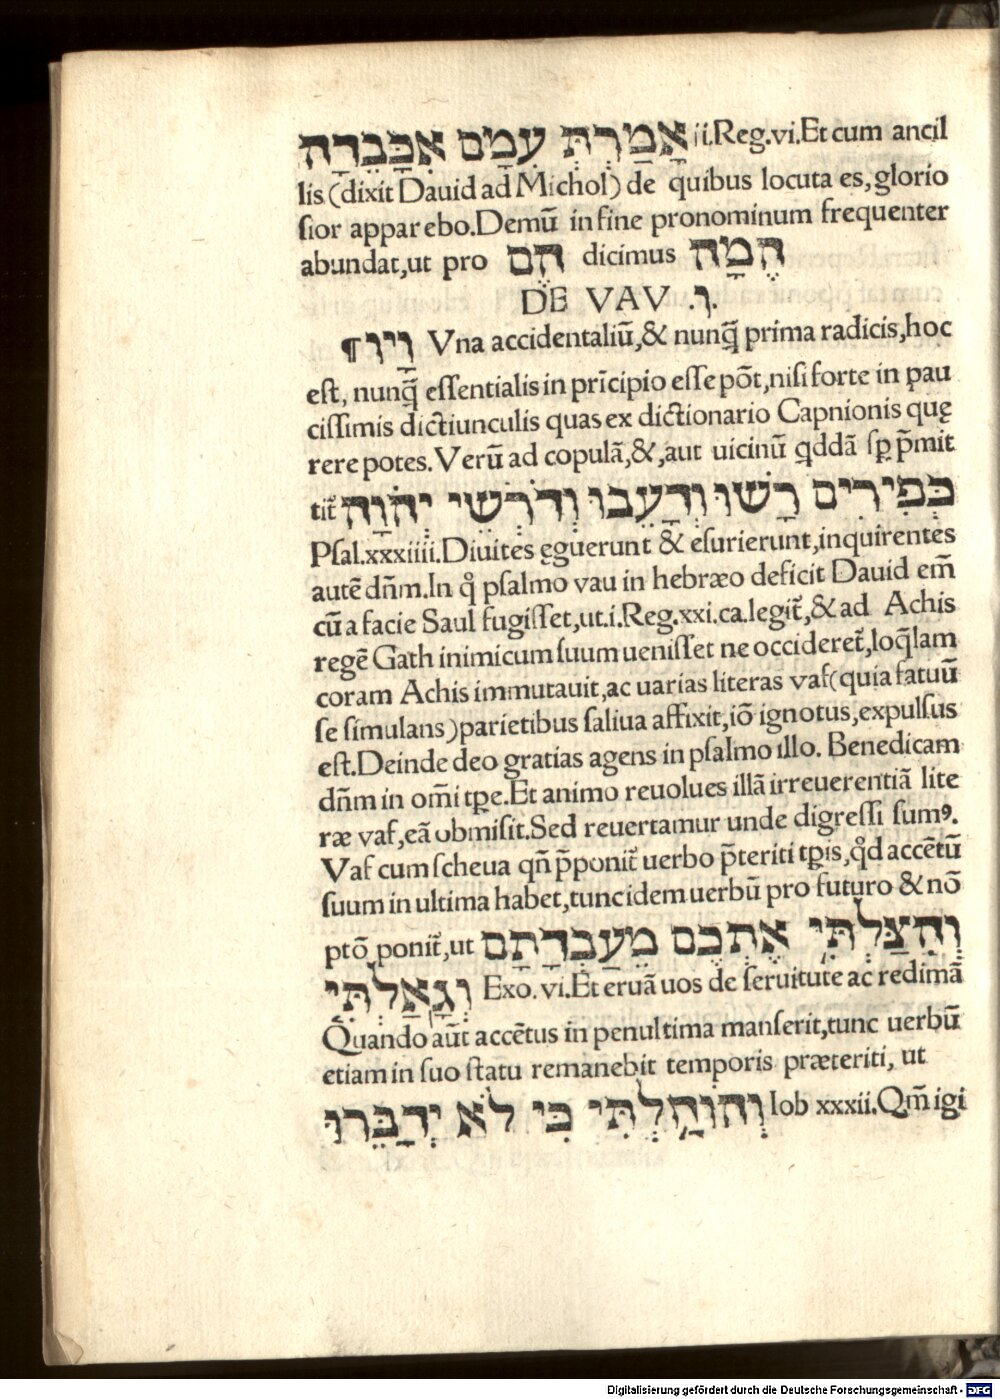 אָמַרְתְּ עִמָּם אִכָּבֵדָה ii.Reg.vi.Et cum ancil
lis(dixit Dauid ad Michol)de quibus locuta es,glorio
sior apparebo.Demū in fine pronominum frequenter
abundat,ut pro הֵם dicimus הֵמָּה
DE VAV .ו.
¶ וָיו Vna accidentaliū,& nunq̄ prima radicis,hoc
est, nunq̄ essentialis in prīcipio esse pōt,nisi forte in pau
cissimis dictiunculis quas ex dictionario Capnionis quę
rere potes.Verū ad copulā,&,aut uicinū qddā sꝑ p̄mit
tit̄ כְּפִירִים רָשׁוּ וְרָעֵבוּ וְדֹרְשֵׁי יְהֹוָה
Psal.xxxiiii.Diuites eguerunt & esurierunt,inquirentes
autē dn̄m.In q̊ psalmo vau in hebræo deficit Dauid em̄
cū a facie Saul fugisset,ut.i.Reg.xxi.ca.legit̄,&ad Achis
regē Gath inimicum suum uenisset ne occideret̄,loq̄lam
coram Achis immutauit,ac uarias literas vaf(quia fatuū
se simulans)parietibus saliua affixit,iō ignotus,expulsus
est.Deinde deo gratias agens in psalmo illo. Benedicam
dn̄m in om̄i tꝑe.Et animo reuolues illā irreuerentiā lite
ræ vaf,eā obmisit.Sed reuertamur unde digressi sumꝰ.
Vaf cum scheua qn̄ p̄ponit̄ uerbo p̄teriti tꝑis,q̊d accētū
suum in ultima habet,tunc idem uerbū pro futuro & nō
ptō ponit̄,ut וְהִצַּלְתִּי אֶתְכֶם מֵעֲבֹדָתָם
וְגָאַלְתִּי Exo.vi.Et eruā uos de seruitute ac redimā
Quando aūt accētus in penultima manserit,tunc uerbū
etiam in suo statu remanebit temporis præteriti, ut
וְהוֹחַלְתִּי כִּי לֹא יְדַבֵּרוּ Iob xxxii.Qm̄ igi
Digitalisierung gefördert durch die Deutsche Forschungsgemeinschaft - DFG